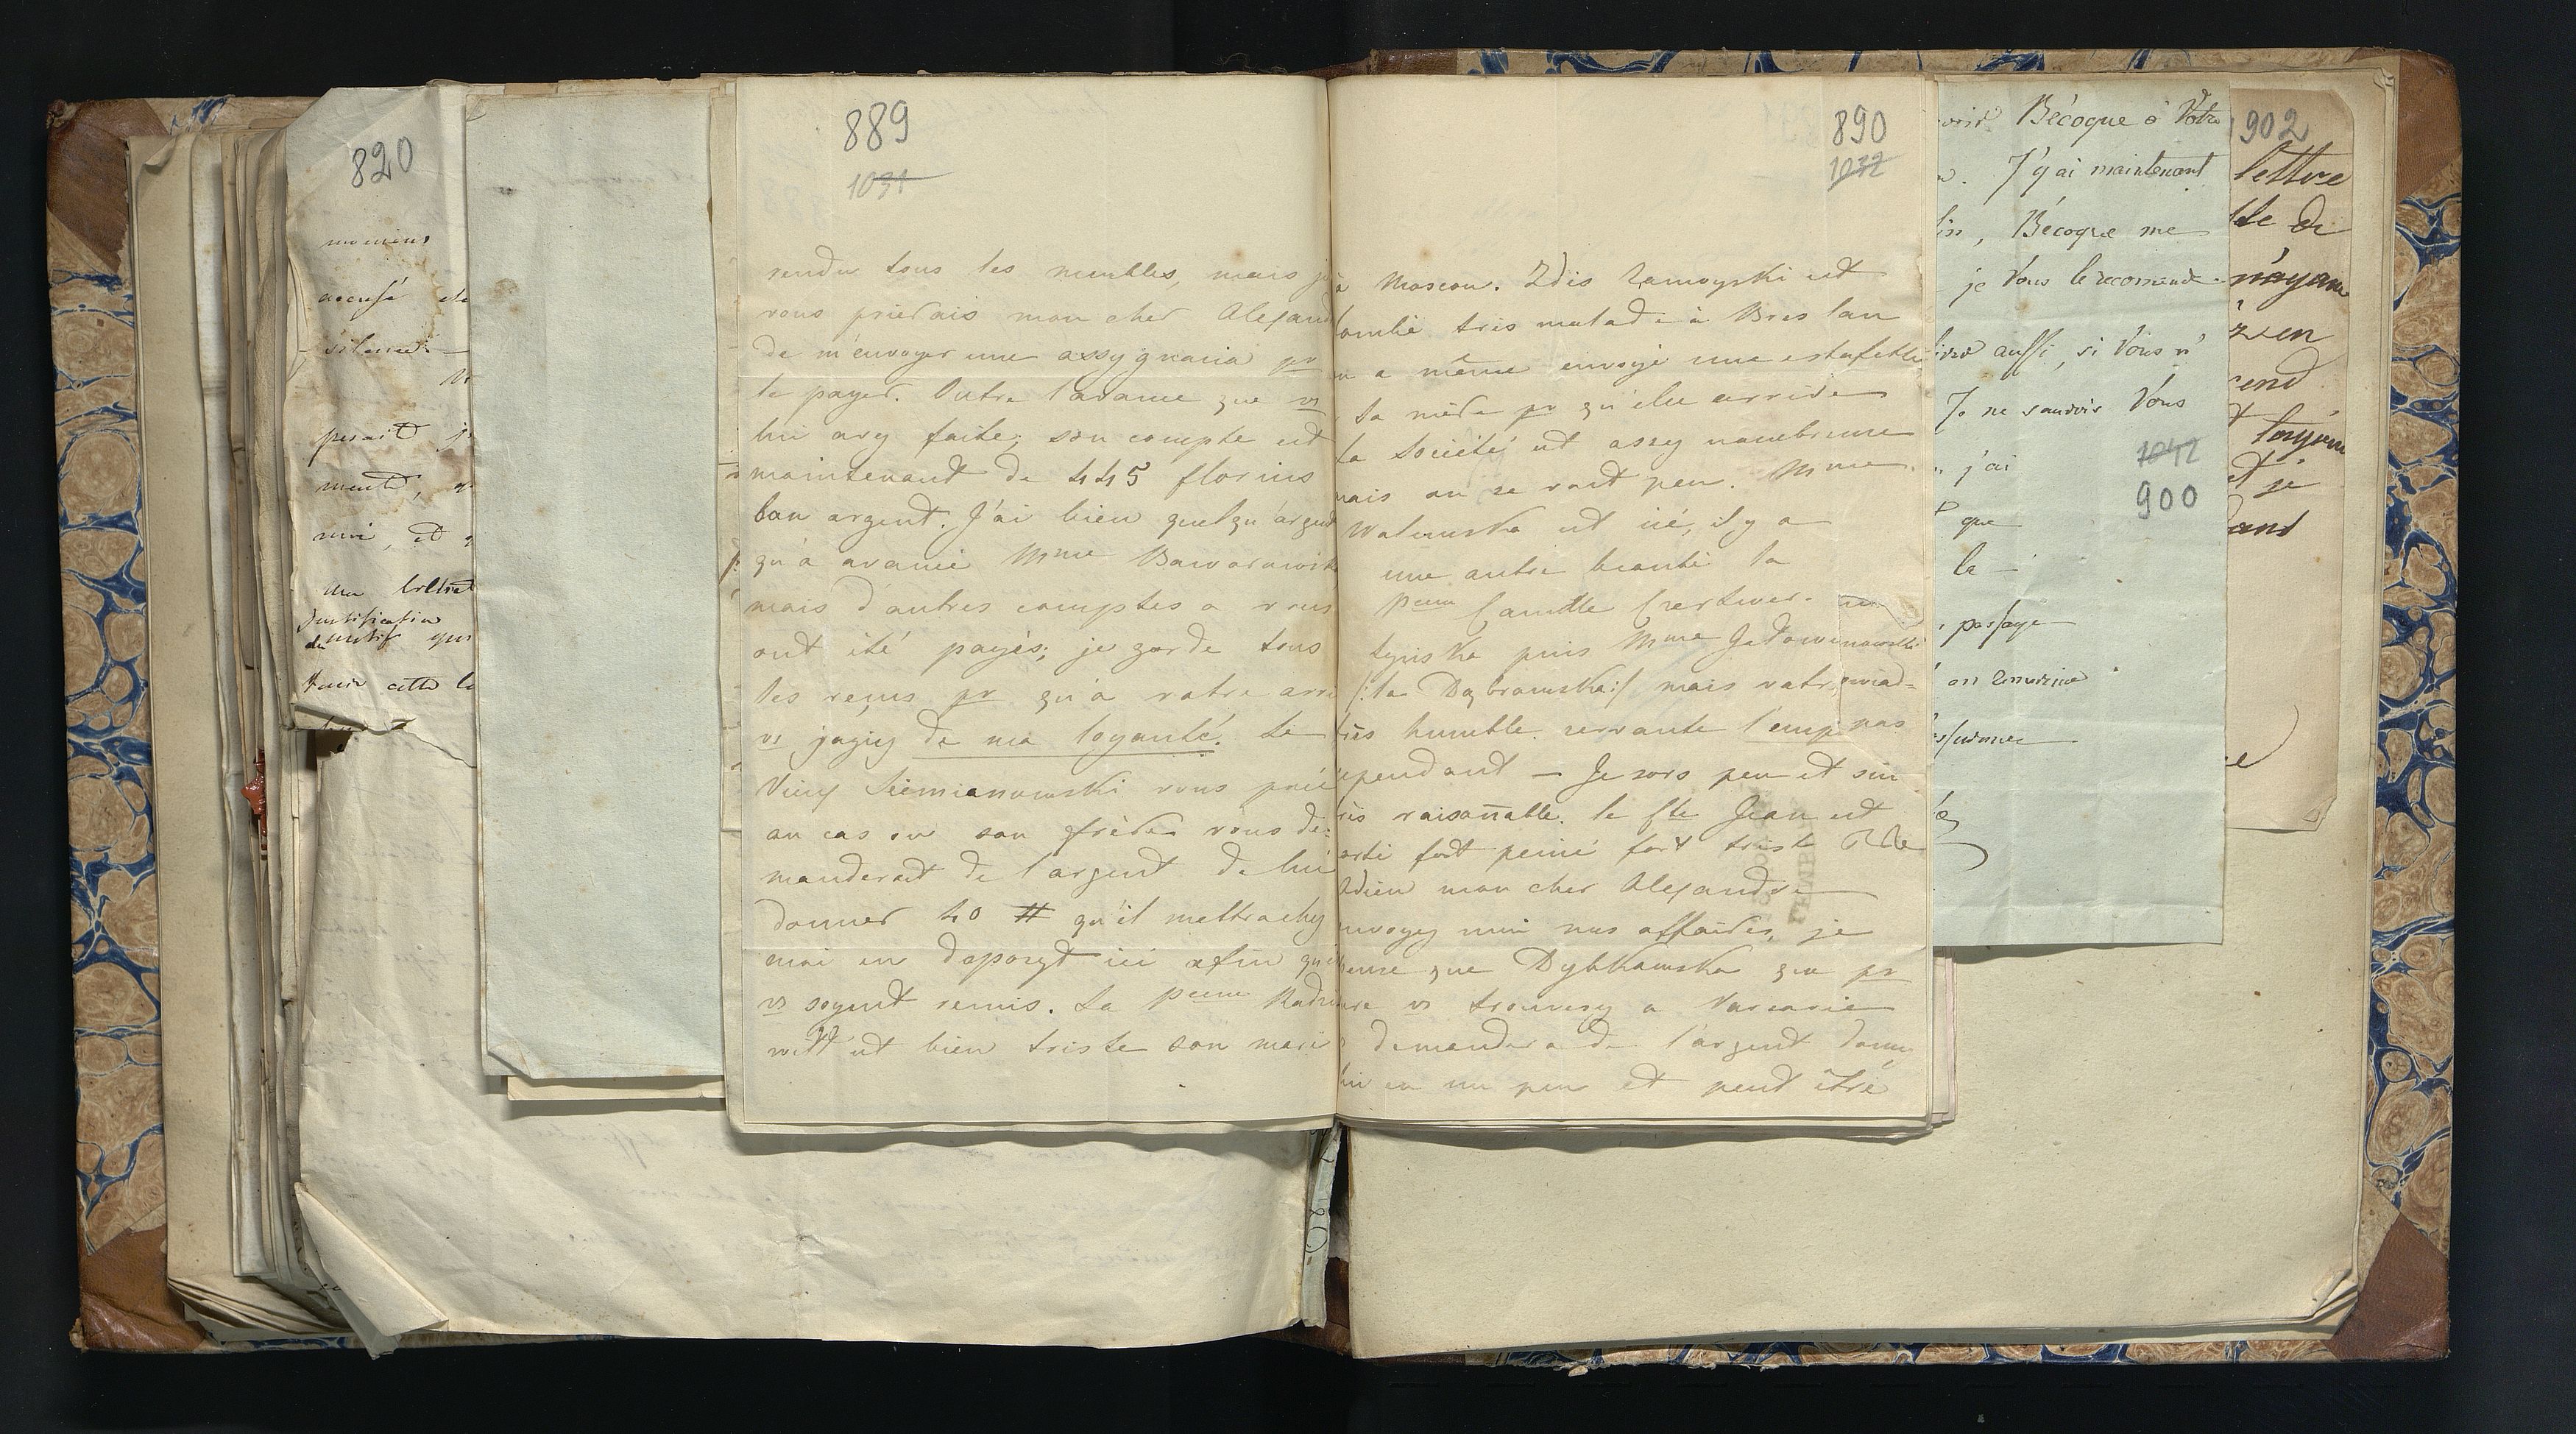 820
momens
accusé
silence
perait
ment,
moi, et
Justification
cette
889
1031
rendu tous les meubles, mais je
vous prierais mon cher Alexand
de m'envoyer une assygnacia pr
le payer. Outre l'avance que vs
lui avez faite; son compte est
maintenant de 445 florins
bon argent. J'ai bien quelqu'argent
qu'a avancé Mme Baworowska
mais d'autres comptes a vous
ont été payés; je garde tous
les reçus pr qu'a votre arri
vs jugiez de ma loyauté. Le
Vieux Siemianowski vous prie
au cas ou son frère vous de-
manderait de l'argent de lui
donner 40 # qu'il mettra chez
moi en depozyt ici afin qu'i
vs soyent remis. La Pcesse Radzi
will est bien triste son mari
890
1032
a Moscou. Zdis Zamoyski est
tombé tres malade à Breslau
on a même envoyé une estafette
sa mère pr qu'elle arrive
La Société est assez nombreuse
mais on se voit peu. Mme
Walewska est ici, il y a
une autre beauté la
Pcesse Camille Czertwer-
tynska puis Mme
/:la Dąbrowska:/ mais votre
très humble servante l'emp
cependant — Je sors peu et suis
très raisoñable. le Cte Jean est
parti fort peiné fort triste
Adieu mon cher Alexandre
envoyez moi nos affaires, je
pense que Dybkowska que pr
vs trouverez a Varsovie
demandera de l'argent donnez
lui en un peu et peut être
Bécoque à Votre
J'y ai maintenant
Bécoque me
je Vous le recomende
aussi, si Vous n'
Je ne saurois Vous
j'ai
1042
900
que
la —
passage
on
902
lettre
de
et je